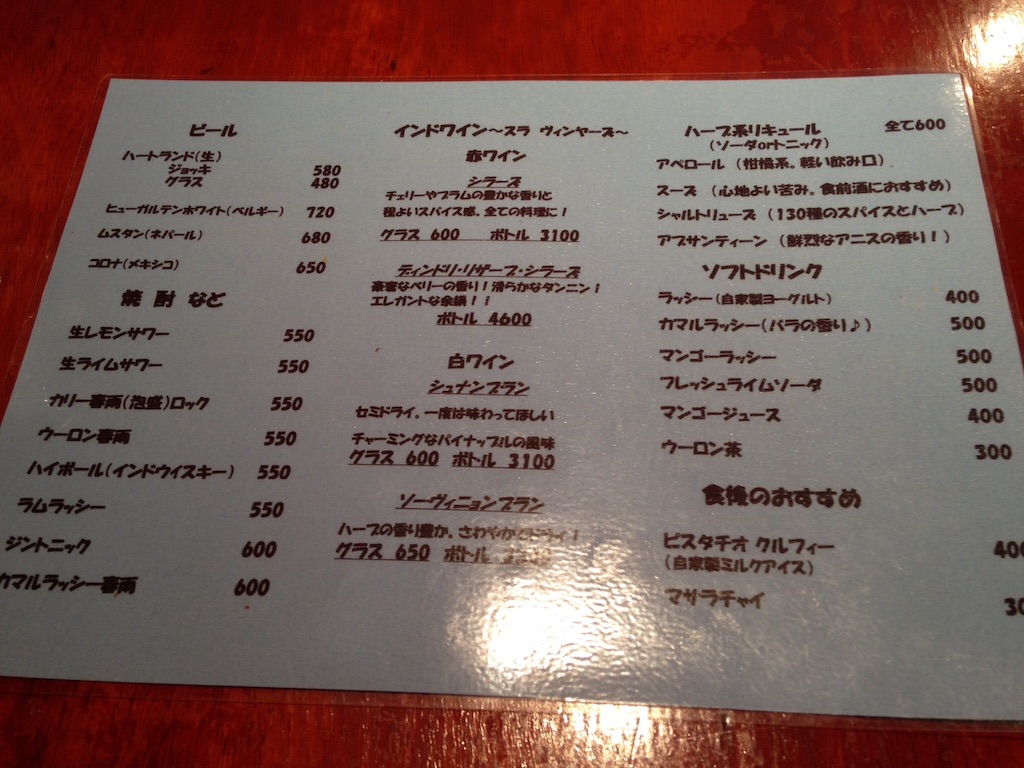 ビール
ハートランド(生)
ジョッキ 580
グラス 480
ヒューガルデンホワイト(ベルギー) 720
ムスタン(ネパール) 680
コロナ(メキシコ) 650
焼酎 など
生レモンサワー 550
生ライムサワー 550
カリー春雨(泡盛)ロック 550
ウーロン春雨 550
ハイボール(インドウイスキー) 550
ラムラッシー 550
ジントニック 600
カマルラッシー春雨 600
インドワイン～スラ ヴィンヤーズ～
赤ワイン
シラーズ
チェリーやプラムの豊かな香りと
程よいスパイス感。全ての料理に！
グラス 600 ボトル 3100
ディンドリ・リザーブ・シラーズ
豪奢なベリーの香り！滑らかなタンニン！
エレガントな余韻！！
ボトル 4600
白ワイン
シュナンブラン
セミドライ。一度は味わってほしい
チャーミングなパイナップルの風味
グラス 600 ボトル 3100
ソーヴィニョンブラン
ハーブの香り豊か。さわやかでドライ！
グラス 650 ボトル
ハーブ系リキュール 全て600
(ソーダorトニック)
アペロール (柑橘系。軽い飲み口)
スーズ (心地よい苦み。食前酒におすすめ)
シャルトリューズ (130種のスパイスとハーブ)
アブサンティーン (鮮烈なアニスの香り！)
ソフトドリンク
ラッシー(自家製ヨーグルト) 400
カマルラッシー(バラの香り♪) 500
マンゴーラッシー 500
フレッシュライムソーダ 500
マンゴージュース 400
ウーロン茶 300
食後のおすすめ
ピスタチオ クルフィー 400
(自家製ミルクアイス)
マサラチャイ